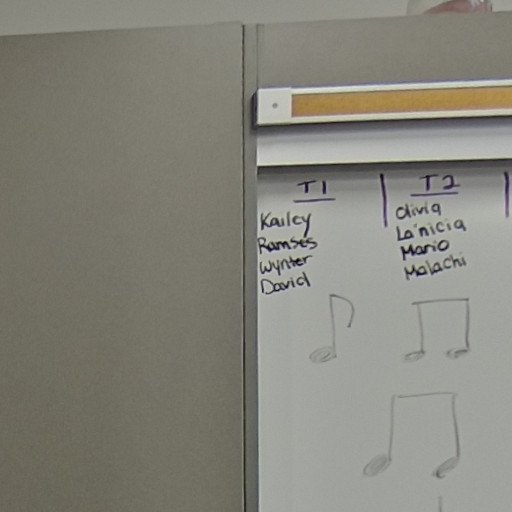 T1
Kailey
Ramses
Wynter
David
T2
Olivia
La'nicia
Mario
Malachi